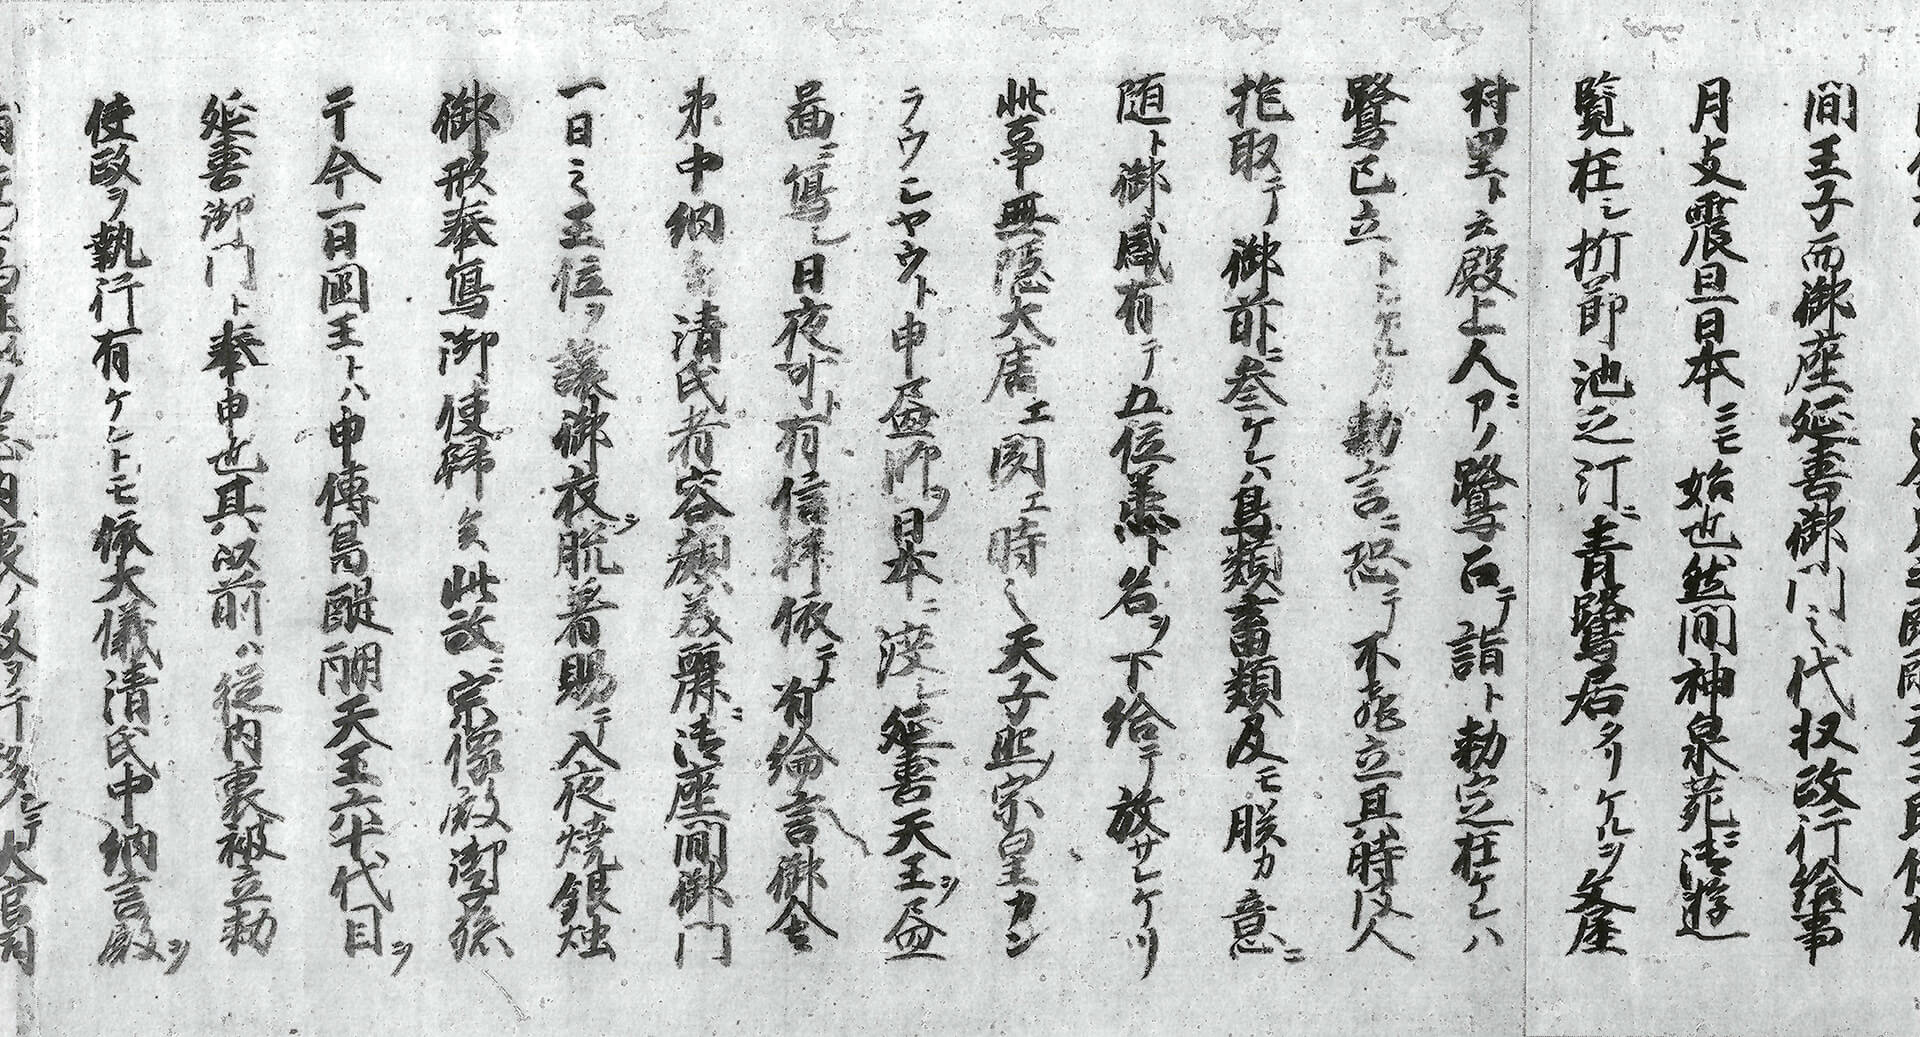 間王子而御座延喜御門之代収改行給事
月支震旦日本ニモ始也然間神泉苑ニ御遊
覧在シ折節池之汀ニ青鷺居タリケルヲ文屋
村里ト云殿上人ニアノ鷺召テ詣ト勅定在ケレハ
鷺已立トシケルカ勅言ニ恐テ不飛立其時役人
抱取テ御前ニ参ケレハ鳥類畜類及モ朕カ意ニ
随ト御感有テ五位鷺ト名ヲ下給テ放サレケリ
此事無隠大唐エ聞エ時之天子照宗皇カン
ラウシヤウト申画師ヲ日本ニ渡シ延喜天王ヲ画
図ニ写シ日夜可有信拝依テ有綸言御舎
弟中納言清氏者容顔美麗ニ御座間御門
一日之王位ヲ譲御夜ヲ脱着賜テ入夜焼銀燭
御形奉写御使帰ケル此故ニ宗像殿御子孫
于今一日国王トハ申伝為醍醐天王六十代目ヲ
延喜御門ト奉申也其以前ハ従内裏被立勅
使政ヲ執行有ケレトモ依大儀清氏中納言殿ヲ